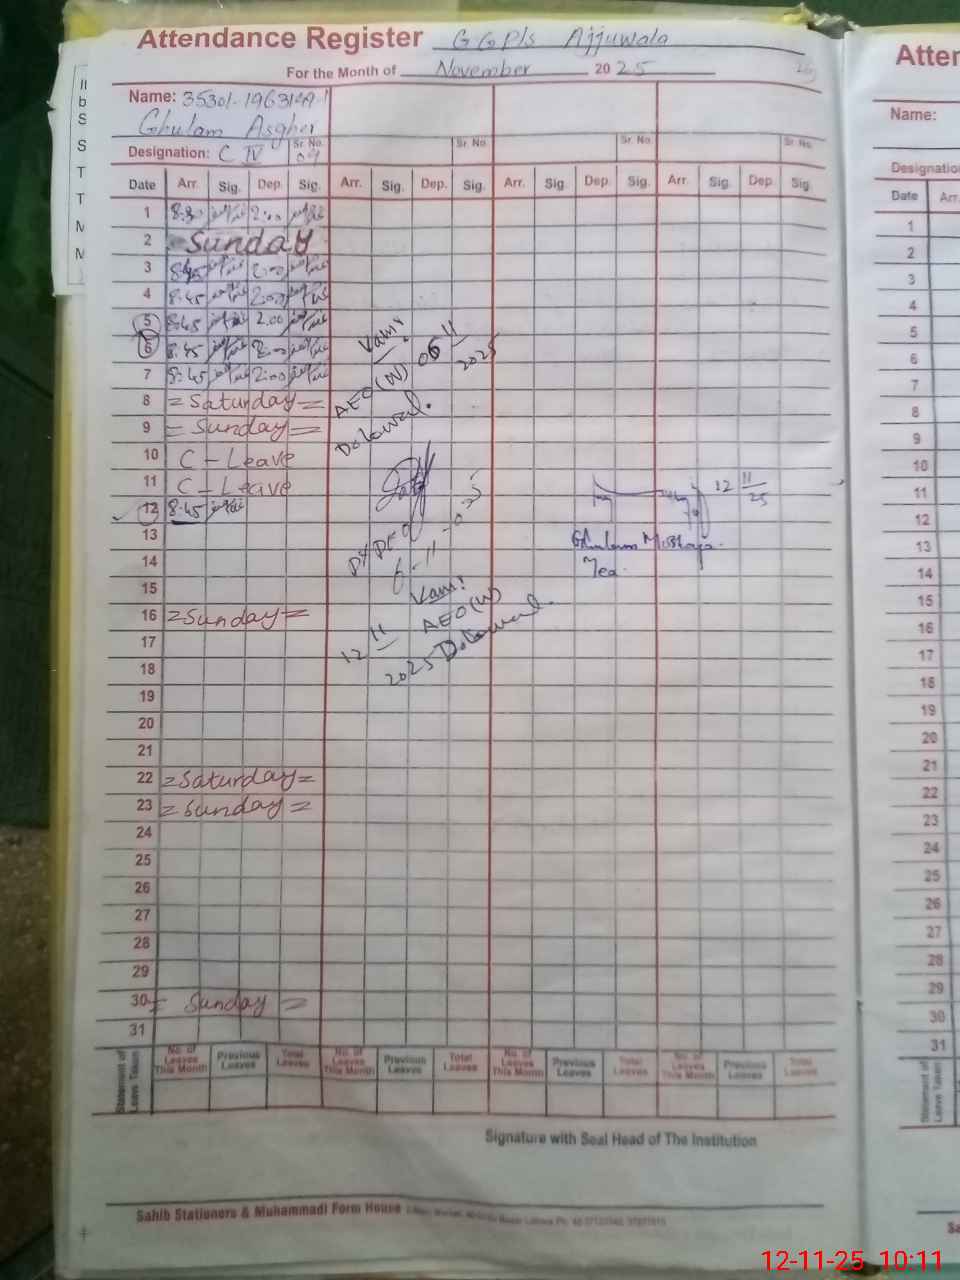 Attendance Register GGPls Ajjuwala
For the Month of November 2025
Name:
Ghulam Asgher
Designation: C IV Sr. No. 09
Sr. No.
Sr. No.
Sr. No.
Date Arr. Sig. Dep. Sig. Arr. Sig. Dep. Sig. Arr. Sig. Dep. Sig. Arr. Sig. Dep. Sig.
1 8:30 2:00
2 Sunday
3 8:45 2:00
4 8:45 2:00
5 8:45 2.00
6 8:45 2:00
7 8:45 2:00
8 = Saturday =
9 = Sunday =
10 C - Leave
11 C - Leave
12 8:45
13
14
15
16 = Sunday =
17
18
19
20
21
22 = Saturday =
23 = Sunday =
24
25
26
27
28
29
30 = Sunday =
31
06 11 2025
AEO (W)
DY DEO
6-11-025
AEO (W)
12 11 2025
12 11 25
Statement of Leave Taken
No. of Leaves This Month Previous Leaves Total Leaves No. of Leaves This Month Previous Leaves Total Leaves No. of Leaves This Month Previous Leaves Total Leaves No. of Leaves This Month Previous Leaves Total Leaves
Signature with Seal Head of The Institution
Sahib Stationers & Muhammadi Form House
Atten
Name:
Designatio
Date Arr.
1
2
3
4
5
6
7
8
9
10
11
12
13
14
15
16
17
18
19
20
21
22
23
24
25
26
27
28
29
30
31
Statement of Leave Taken
12-11-25 10:11